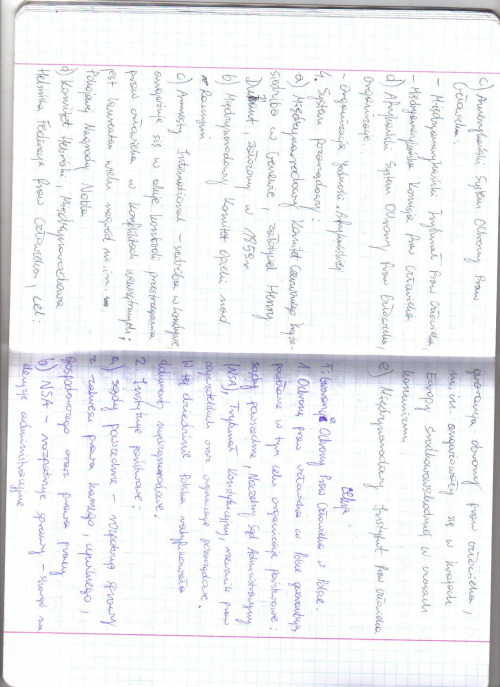 c) Amerykański System Ochrony Praw
Człowieka:
- Międzyamerykański Trybunał Praw Człowieka,
- Międzyamerykańska Komisja Praw Człowieka
d) Afrykański System Ochrony Praw Człowieka,
organizacje:
- Organizacja Jedności Afrykańskiej
4. System pozarządowy:
a) Międzynarodowy Komitet Czerwonego Krzyża-
siedziba w Genewie, założyciel Henry
Dunant, założony w 1859r
b) Międzynarodowy Komitet Opieki nad
Rannym
c) Amnesty International - siedziba w Londynie,
angażuje się w akcje kontroli przestrzegania
praw człowieka w konfliktach wewnętrznych;
jest laureatem wielu nagród m.in.
Pokojowej Nagrody Nobla
d) Komitet Helsiński, Międzynarodowa
Helsińska Federacja Praw Człowieka, cel:
gwarancja obrony praw człowieka,
m.in. angażowały się w krajach
Europy środkowowschodniej w czasach
komunizmu
e) Międzynarodowy Instytut Praw Człowieka
T: Gwarancje Ochrony Praw Człowieka w Polsce.
1. Ochronę praw człowieka w Polsce gwarantują
powołane w tym celu organizacje państwowe:
sądy powszechne, Naczelny Sąd Administracyjny
(NSA), Trybunał Konstytucyjny, rzecznik praw
obywatelskich oraz organizacje pozarządowe.
W tej dziedzinie Polska ratyfikowała
dokumenty międzynarodowe.
2. Instytucje państwowe:
a) sądy powszechne - rozpatrują sprawy
z zakresu prawa karnego, cywilnego,
gospodarczego oraz prawa pracy
b) NSA - rozpatruje sprawy - skargi na
decyzje administracyjne